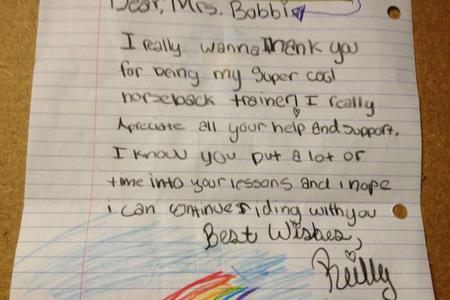 Dear, Mrs. Bobbi
I really wanna thank you
for being my super cool
horseback trainer! I really
Apreciate all your help and support.
I know you put a lot of
time into your lessons and i hope
i can continue riding with you
Best Wishes,
Reilly